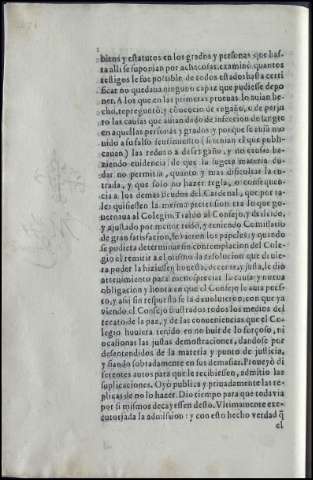 bitos y estatutos en los grados y personas que has-
ta alli se suponian por achacosas, examinò quantos
testigos le fue possible, de todos estados hasta certi
ficar no quedava ninguno capaz que pudiesse depo
ner. A los que en las primeras pruevas lo auian he-
cho, repreguntò, y conocido de engaño, o de perju
ro las causas que auian dado de infeccion de sangre
en aquellas personas y grados y porque se auia mo
uido a su falso sentimiento
cauan) las reduxo a desengaño, y no escuso ha-
ziendo euidencia de que la sugeta materia du-
dar no permitia, quanto y mas dificultar la en-
trada, y que solo no hazer regla, o consequen-
cia a los demas deudos del Cardenal, que por ta-
les quisiessen la misma pretension era lo que go-
uernaua al Colegio. Traido al Consejo, y
y ajustado por menor todo, y teniendo Comissario
de gran satisfacion, se vieron los papeles: y quando
se pudiera determinar sin contemplacion del Cole-
gio el remitir a el mismo la resolucion que
ra poder la hiziesse honesta, decente, y justa, le diò
atreuimiento para menospreciar la causa y nueua
obligacion y honra en que el Consejo le auia pues-
to, y ahi sin respuesta se la deuoluieron, con que ya
viendo el Consejo frustrados todos los medios del
recato de la paz, y de las conueniencias que el Co-
legio huviera tenido en no huir de lo forçoso, ni
ocasionas las justas demostraciones, dandose por
desentendidos de la materia y punto de justicia,
y fiando sobradamente en sus demasias. Proueyò di
ferentes autos para que le recibiessen, admitio las
suplicaciones. Oyò publica y priuadamente las re-
plicas de no lo hazer. Dio tiempo para que todavia
por si mismos decayessen desto. Vltimamente exe-
cutoriada la admission: y con esto hecho verdad q̃
el